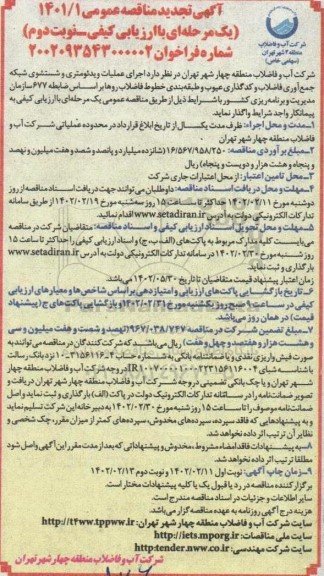 آگهی تجدید مناقصه عمومی ۱۴۰۱/۱
(یک مرحله‌ای با ارزیابی کیفی _ نوبت دوم)
شماره فراخوان ۲۰۰۲۰۹۳۵۴۳۰۰۰۰۰۲
شرکت آب و فاضلاب
منطقه ۴ شهر تهران
(سهامی خاص)
شرکت آب و فاضلاب منطقه چهار شهر تهران در نظر دارد اجرای عملیات ویدئومتری و شستشوی شبکه
جمع‌آوری فاضلاب و کدگذاری عیوب و طبقه‌بندی خطوط فاضلاب‌روها بر اساس ضابطه ۶۷۷ سازمان
مدیریت و برنامه‌ریزی کشور با شرایط ذیل از طریق مناقصه عمومی یک مرحله‌ای با ارزیابی کیفی به
پیمانکار واجد شرایط واگذار نماید.
۱_مدت و محل اجرا: ظرف مدت یکسال از تاریخ ابلاغ قرارداد در محدوده عملیاتی شرکت آب و
فاضلاب منطقه چهار شهر تهران
۲_مبلغ برآوردی مناقصه: ۱۶/۵۶۷/۹۵۸/۲۵۰ (شانزده میلیارد و پانصد و شصت و هفت میلیون و نهصد
و پنجاه و هشت هزار و دویست و پنجاه) ریال
۳_محل تامین اعتبار: از محل اعتبارات جاری شرکت
۴_مهلت و محل دریافت اسناد مناقصه: داوطلبان می‌توانند جهت دریافت اسناد مناقصه از روز
دوشنبه مورخ ۱۴۰۲/۰۲/۱۱ حداکثر تا ساعت ۱۵ روز سه‌شنبه مورخ ۱۴۰۲/۰۲/۱۹ از طریق سامانه
تدارکات الکترونیکی دولت به آدرس www.setadiran.ir اقدام نمایند.
۵_مهلت و محل تحویل اسناد ارزیابی کیفی و اسناد مناقصه: متقاضیان شرکت در مناقصه
می‌بایست کلیه مدارک مربوط به پاکت‌های (الف، ب، ج) و اسناد ارزیابی کیفی را حداکثر تا ساعت ۱۵
روز شنبه مورخ ۱۴۰۲/۰۲/۳۰ در سامانه تدارکات الکترونیکی دولت به آدرس www.setadiran.ir
بارگذاری و ثبت نماید.
زمان اعتبار پیشنهاد قیمت متقاضیان تا تاریخ ۱۴۰۲/۰۵/۳۰ می‌باشد.
۶_تاریخ بازگشایی پاکت‌های ارزیابی و امتیازدهی بر اساس شاخص‌ها و معیارهای ارزیابی
کیفی در ساعت ۹ صبح روز یکشنبه مورخ ۱۴۰۲/۰۲/۳۱ و بازگشایی پاکت‌های ج (پیشنهاد
قیمت) در همان روز می‌باشد.
۷_مبلغ تضمین شرکت در مناقصه ۹۶۷/۰۳۸/۷۴۷ (نهصد و شصت و هفت میلیون و سی
و هشت هزار و هفتصد و چهل و هفت) ریال می‌باشد که شرکت‌کنندگان در مناقصه می‌توانند به
صورت فیش واریزی نقدی و یا ضمانتنامه بانکی به شماره حساب
نزد بانک رسالت
با شناسه شبای
در وجه شرکت آب و فاضلاب منطقه چهار
شهر تهران و یا چک بانکی تضمینی در وجه شرکت آب و فاضلاب منطقه چهار شهر تهران دریافت و
تصویر ضمانت‌نامه را در سامانه تدارکات الکترونیک دولت در پاکت (الف) بارگذاری و ثبت نماید و اصل
ضمانت‌نامه موصوف را تا ساعت ۱۵ روز شنبه مورخ ۱۴۰۲/۰۲/۳۰ به دبیرخانه این شرکت تسلیم نماید
و به پیشنهادهایی که فاقد سپرده، سپرده‌های مخدوش، سپرده‌های کمتر از میزان مقرر، چک شخصی و
نظایر آن ترتیب اثر داده نخواهد شد.
۸_به پیشنهادات فاقد امضا، مشروط، مخدوش و پیشنهاداتی که بعد از مدت مقرر این آگهی واصل شود
مطلقا ترتیب اثر داده نخواهد شد.
۹_زمان چاپ آگهی: نوبت اول ۱۴۰۲/۰۲/۱۱ و نوبت دوم ۱۴۰۲/۰۲/۱۳
برگزارکننده مناقصه در رد یا قبول یک یا کلیه پیشنهادات مختار است.
سایر اطلاعات و جزئیات در اسناد مناقصه مندرج است.
هزینه درج آگهی روزنامه به عهده مناقصه‌گزار می‌باشد.
سایت شرکت آب و فاضلاب منطقه چهار شهر تهران: http://t4ww.tppww.ir
سایت ملی مناقصات: http://iets.mporg.ir
سایت شرکت مهندسی: http:tender.nww.co.ir
شرکت آب و فاضلاب منطقه چهار شهر تهران